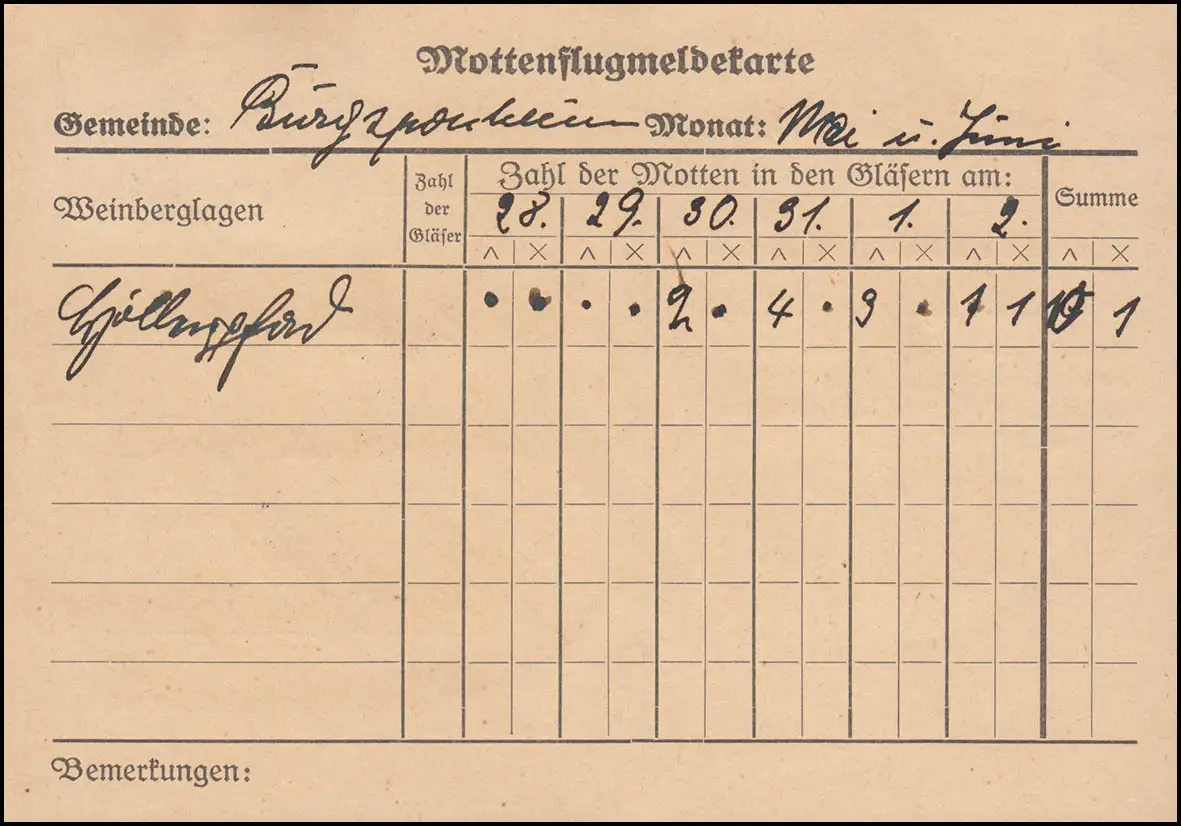 Mottenflugmeldekarte
Gemeinde: Burgsponheim Monat: Mai u. Juni
Weinberglagen Zahl der Gläser Zahl der Motten in den Gläsern am: Summe
28. 29. 30. 31. 1. 2.
^ × ^ × ^ × ^ × ^ × ^ × ^ ×
Höllenpfad • • • • 2 • 4 • 3 • 1 1 10 1
Bemerkungen: